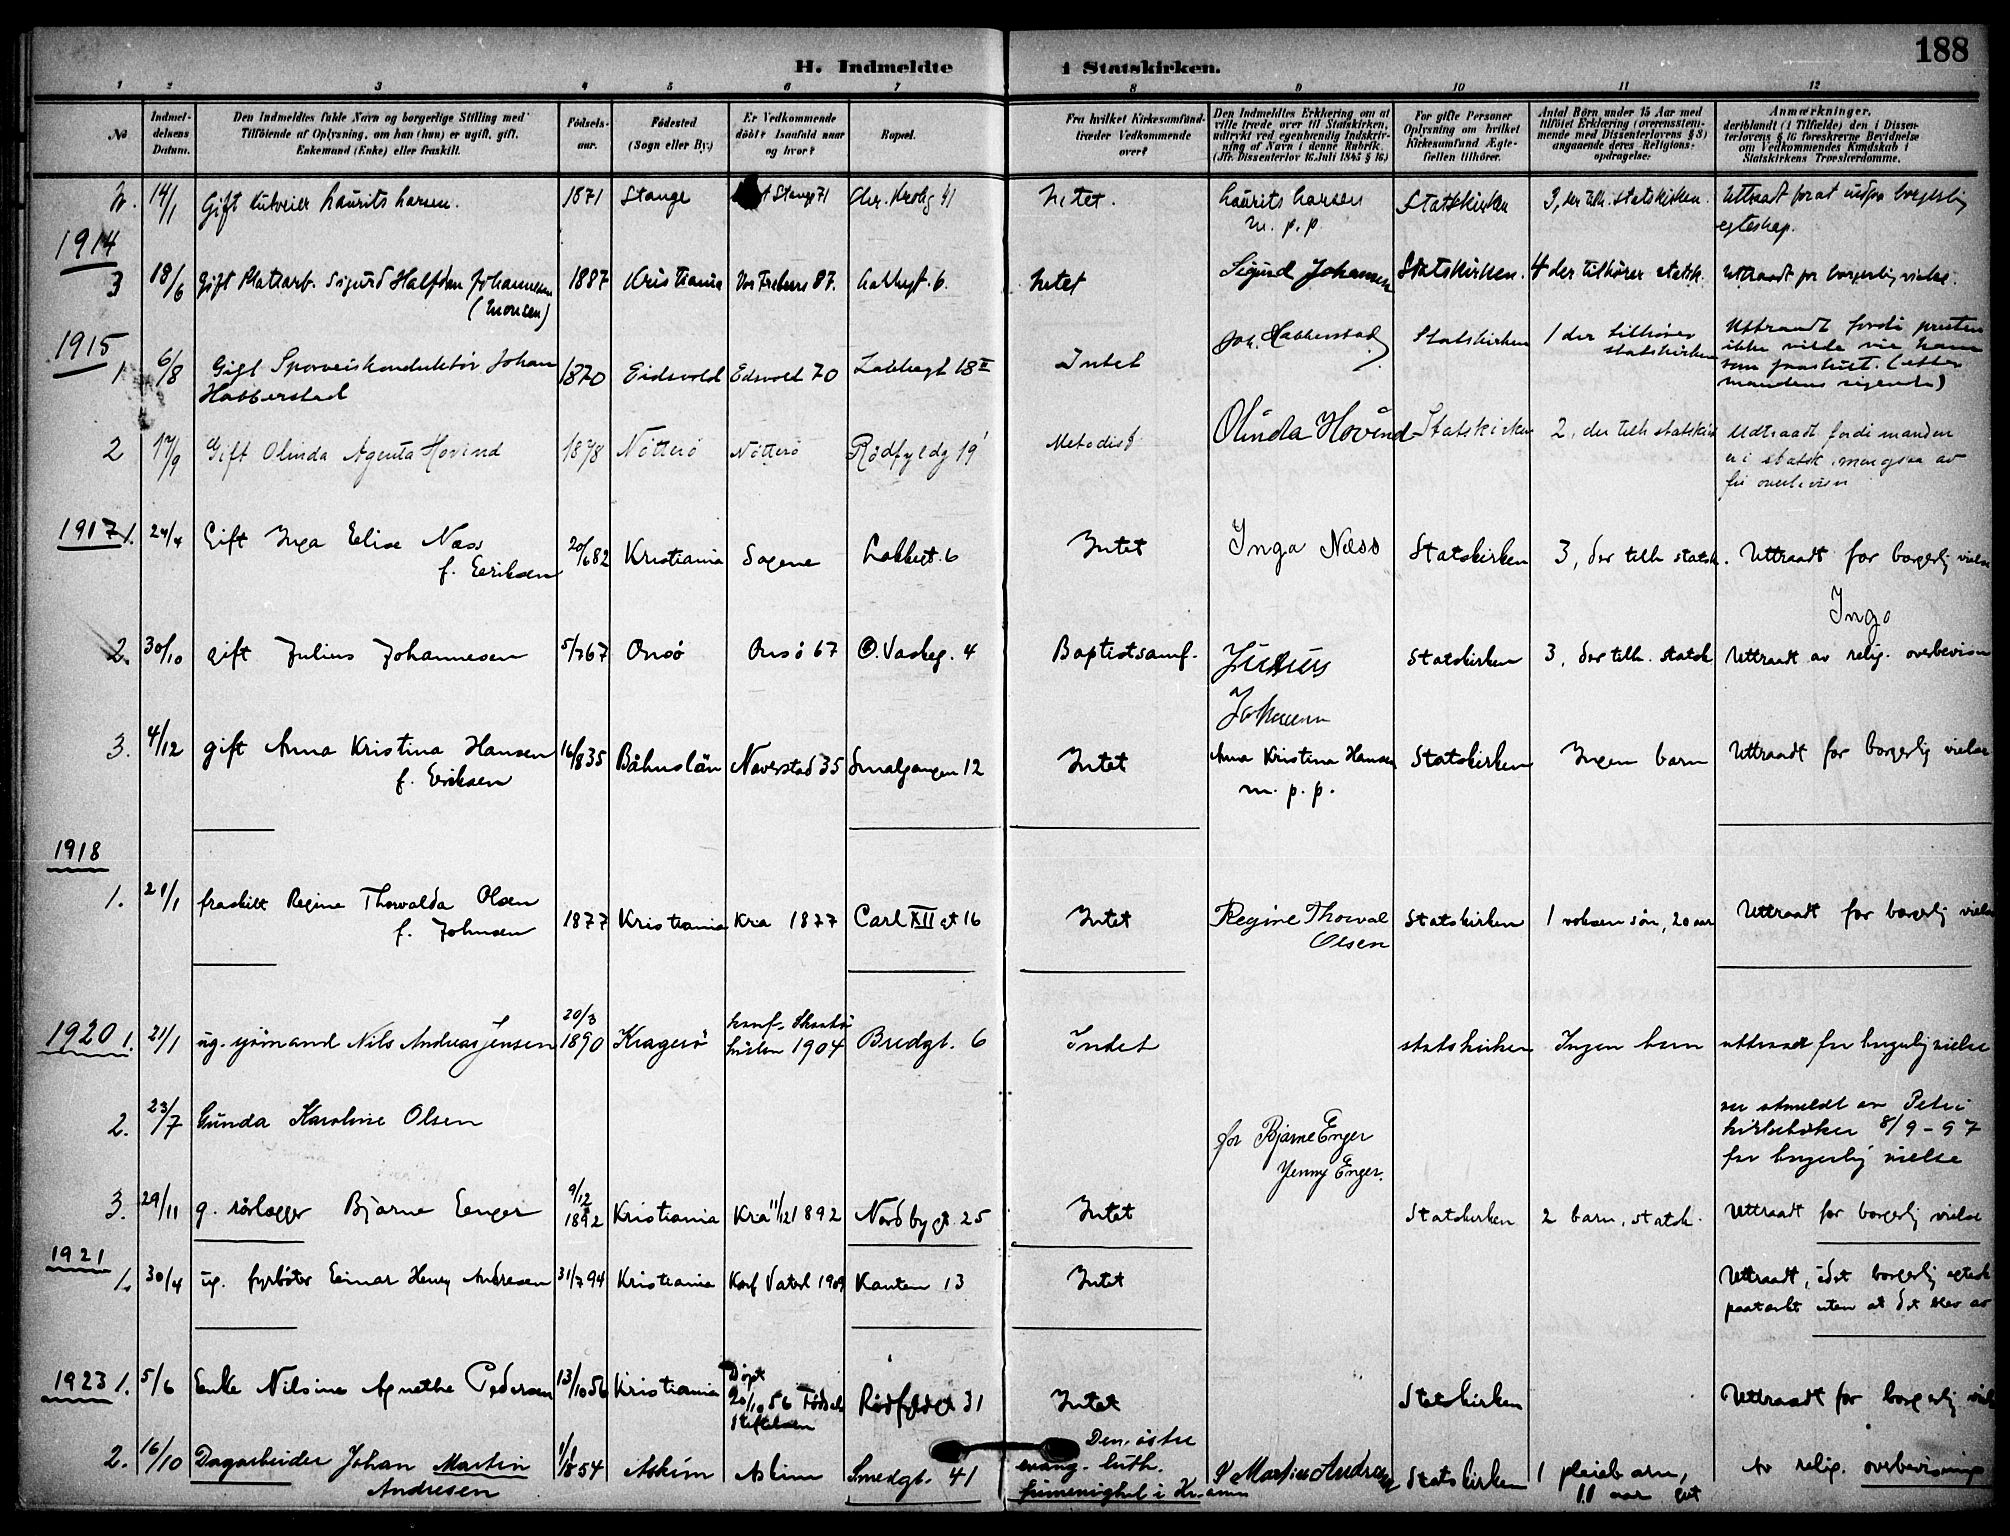 188
H. Indmeldte i Statskirken.
1 2 3 4 5 6 7 8 9 10 11 12
No
Indmel-
delsens
Datum.
Den Indmeldtes fulde Navn og borgerlige Stilling med
Tilföiende af Oplysning, om han (hun) er ugift, gift,
Enkemand (Enke) eller fraskilt.
Födsels-
aar.
Födested
(Sogn eller By.)
Er Vedkommende
döbt? Isaafald naar
og hvor?
Bopæl.
Fra hvilket Kirkesamfund
træder Vedkommende
over?
Den Indmeldtes Erklæring om at
ville træde over til Statskirken,
udtrykt ved egenhændig Indskriv-
ning af Navn i denne Rubrik.
(Jfr. Dissenterlov 16 Juli 1845 § 16)
For gifte Personer
Oplysning om hvilket
Kirkesamfund Ægte-
fællen tilhörer.
Antal Börn under 15 Aar med
tilföiet Erklæring (overensstem-
mende med Dissenterlovens § 8)
angaaende deres Religions-
opdragelse.
Anmærkninger,
deriblandt (i Tilfælde) den i Dissen-
terlovens § 16 foreskrevne Bevidnelse
om Vedkommendes Kundskab i
Statskirkens Troeslærdomme.
2. 14/1 Gift Laurits Larsen. 1871 Stange Stange 71 Chr. Krohg 41 Intet. Laurits Larsen Statskirken 3, der tilh. statskirken. Uttraadt for at indgaa borgerlig
m. p. p. egteskap.
1914
3 18/6 Gift Platearb. Sigurd Halfdan Johannesen 1887 Kristiania Vor Frelsers 87. Lakkegt. 6. Intet Sigurd Johansen Statskirken. 4 der tilhører statsk. Uttraadt for borgerlig vielse.
(Monsen)
1915
1 6/8 Gift Sporveiskonduktör Johan 1870 Eidsvold Edsvold 70 Lakkegt 18 II Intet Joh. Habberstad Statskirken 1 der tilhörer Uttraadt fordi presten
Habberstad statskirken ikke vilde vie ham
som fraskilt. (efter
mandens sigende)
2 17/9 Gift Olinda Agenta Hovind 1878 Nötterö Nötterö Rødfyldg 19 Metodist Olinda Hovind Statskirken 2, der tilh statskirk Udtraadt fordi manden
er i statsk. men ogsaa av
fri overbevisn
1917 1. 24/4 Gift Inga Elise Næss 20/6 82 Kristiania Sagene Lakkegt. 6 Intet Inga Næss Statskirken 3, der tilh statsk. Uttraadt for borgerlig vielse
f. Eriksen
Inga
2. 30/10 gift Julius Johannesen 5/7 67 Onsö Onsö 67 Ø. Vaskeg. 4 Baptistsamf. Julius Statskirken 3, der tilh. statsk Uttraadt av relig. overbevisn
Johannesen
3. 4/12 gift Anna Kristina Hansen 16/8 35 Båhuslän Naverstad 35 Smalgangen 12 Intet Anna Kristina Hansen Statskirken Ingen barn Uttraadt for borgerlig vielse
f. Eriksen m. p. p.
1918
1. 21/1 fraskilt Regine Thorvalda Olsen 1877 Kristiania Kria 1877 Carl XII gt 16 Intet Regine Thorval Statskirken 1 voksen sön, 20 aar Uttraadt for borgerlig vielse
f. Johnsen Olsen
1920 1. 21/1 ug. sjömand Nils Andreas Jensen 20/3 1890 Kragerö konf. Skaatö kirken 1904 Bredgt. 6 Intet statskirken Ingen barn uttraadt for borgerlig vielse
2. 23/7 Gunda Karoline Olsen utmeldt av Petri
kirkeboken 8/9-97
for borgerlig vielse
for Bjarne Enger
Jenny Enger.
3. 29/11 g. rörlægger Bjarne Enger 9/12 1892 Kristiania Kria 11/12 1892 Nordbygt 25 Intet Statskirken 2 barn, statsk. Uttraadt for borgerlig vielse
1921
1. 30/4 ug. fyrböter Einar Henry Andresen 31/7 94 Kristiania Konf Vaterl 1909 Kanten 13 Intet Uttraadt, idet borgerlig egtesk
paatænkt uten at det blev av
1923 1. 5/6 Enke Nilsine Agnethe Pedersen 13/10 56 Kristiania Döpt 20/10 56 Fødsels stiftelsen Rødfyldgt 31 Intet Statskirken Uttraadt for borgerlig viels
2. 16/10 Dagarbeider Johan Martin 1/8 54 Askim Askim Smedgt. 41 Den östre evang. luth. frimenighet i Kr.ania J Martin Andresen Statskirken 1 pleiebarn, Av relig. overbevisning
Andresen 11 aar gut